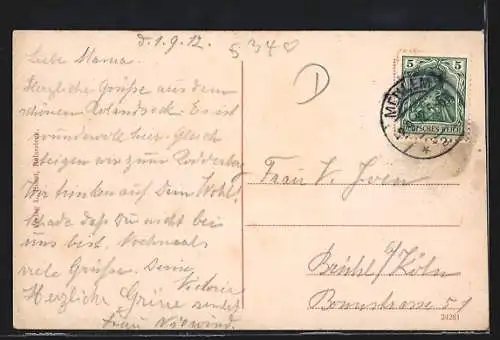 d. 1. 9. 12.
5340
D
Liebe Mama.
Herzliche Grüße aus dem
schönen Rolandseck. Es ist
wundervoll hier. Gleich
steigen wir zum Rodderberg
Wir trinken auf Dein Wohl.
schade daß Du nicht bei
uns bist. Nochmals
viele Grüße. Deine
Victoria
Herzliche Grüße sendet
Frau
5 5
DEUTSCHES REICH
MEHLEM
Frau V. Joen
Brühl b/Köln
Bonnstrasse 51
24281